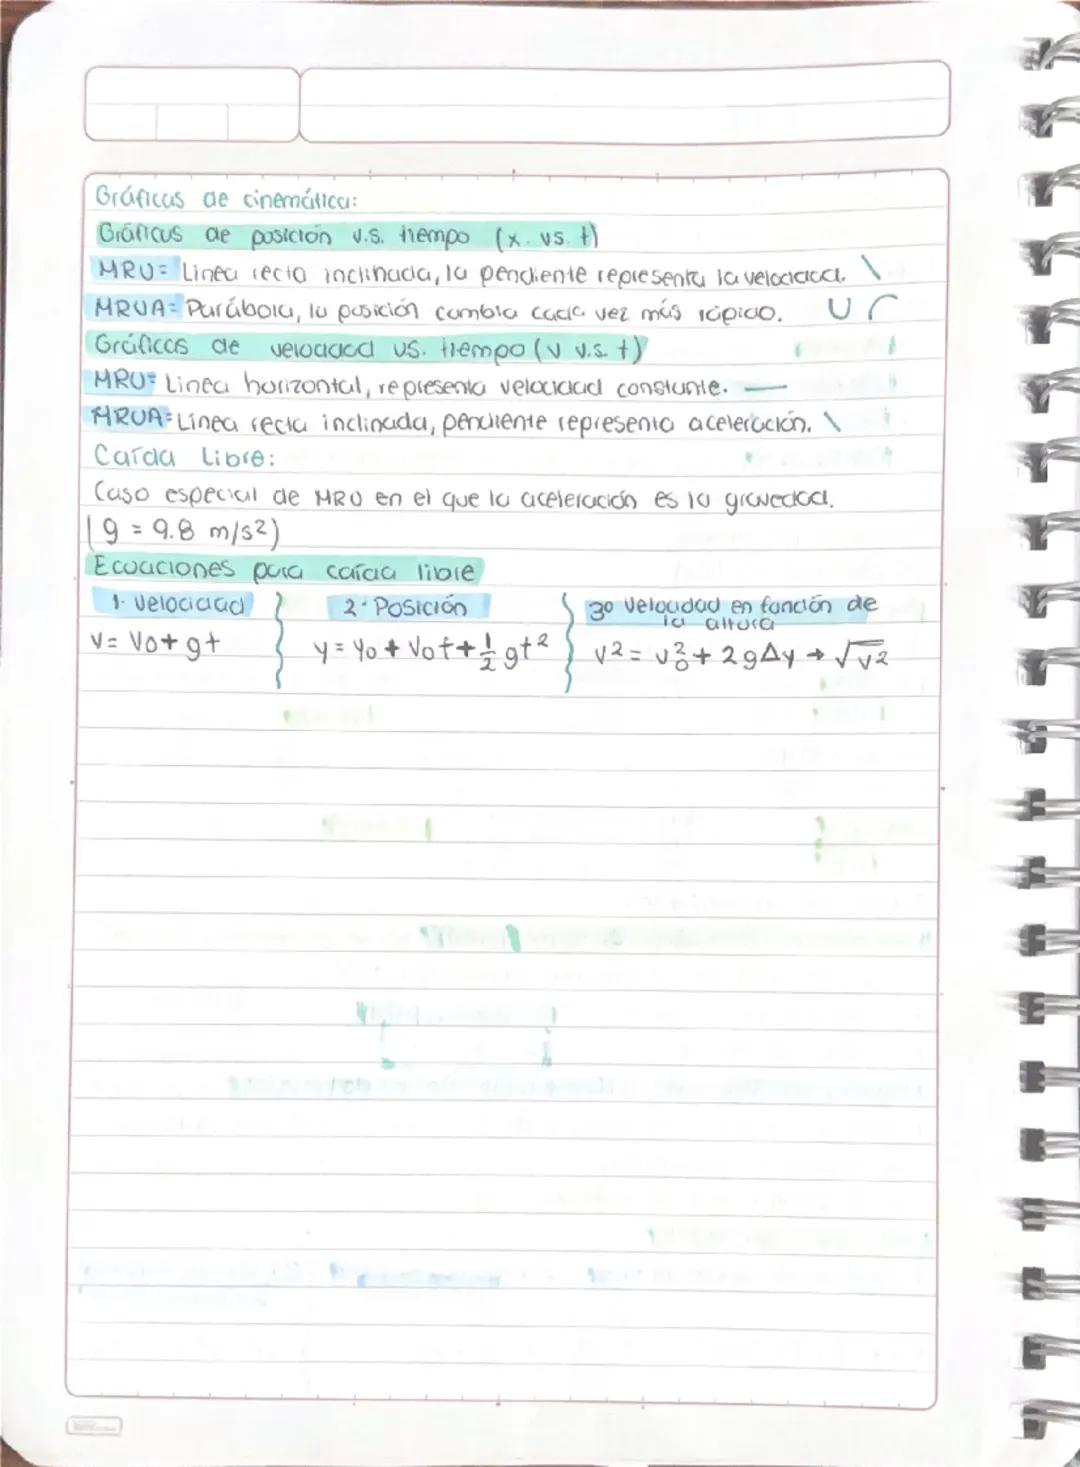 Gráficas de cinemática:
Gráficas de posición v.s. tiempo (x. vs. t)
MRU= Linea recta inclinada, la pendiente representa la velocidad. \
MRUA= Parábola, la posición cambia cada vez más rápido.
Gráficas de velocidad vs. tiempo (v v.s. t)
MRU= Linea horizontal, representa velocidad constante. —
MRUA= Línea recta inclinada, pendiente representa aceleración. \
Caída Libre:
Caso especial de MRU en el que la aceleración es la gravedad.
(g = 9.8 m/s2)
Ecuaciones para caída libre
1. Velocidad
2. Posición
3º Velocidad en función de
la altura
v= v0+ gt
y= y0 + v0t+ 1/2 gt²
v² = v0² + 2gΔy → √v²